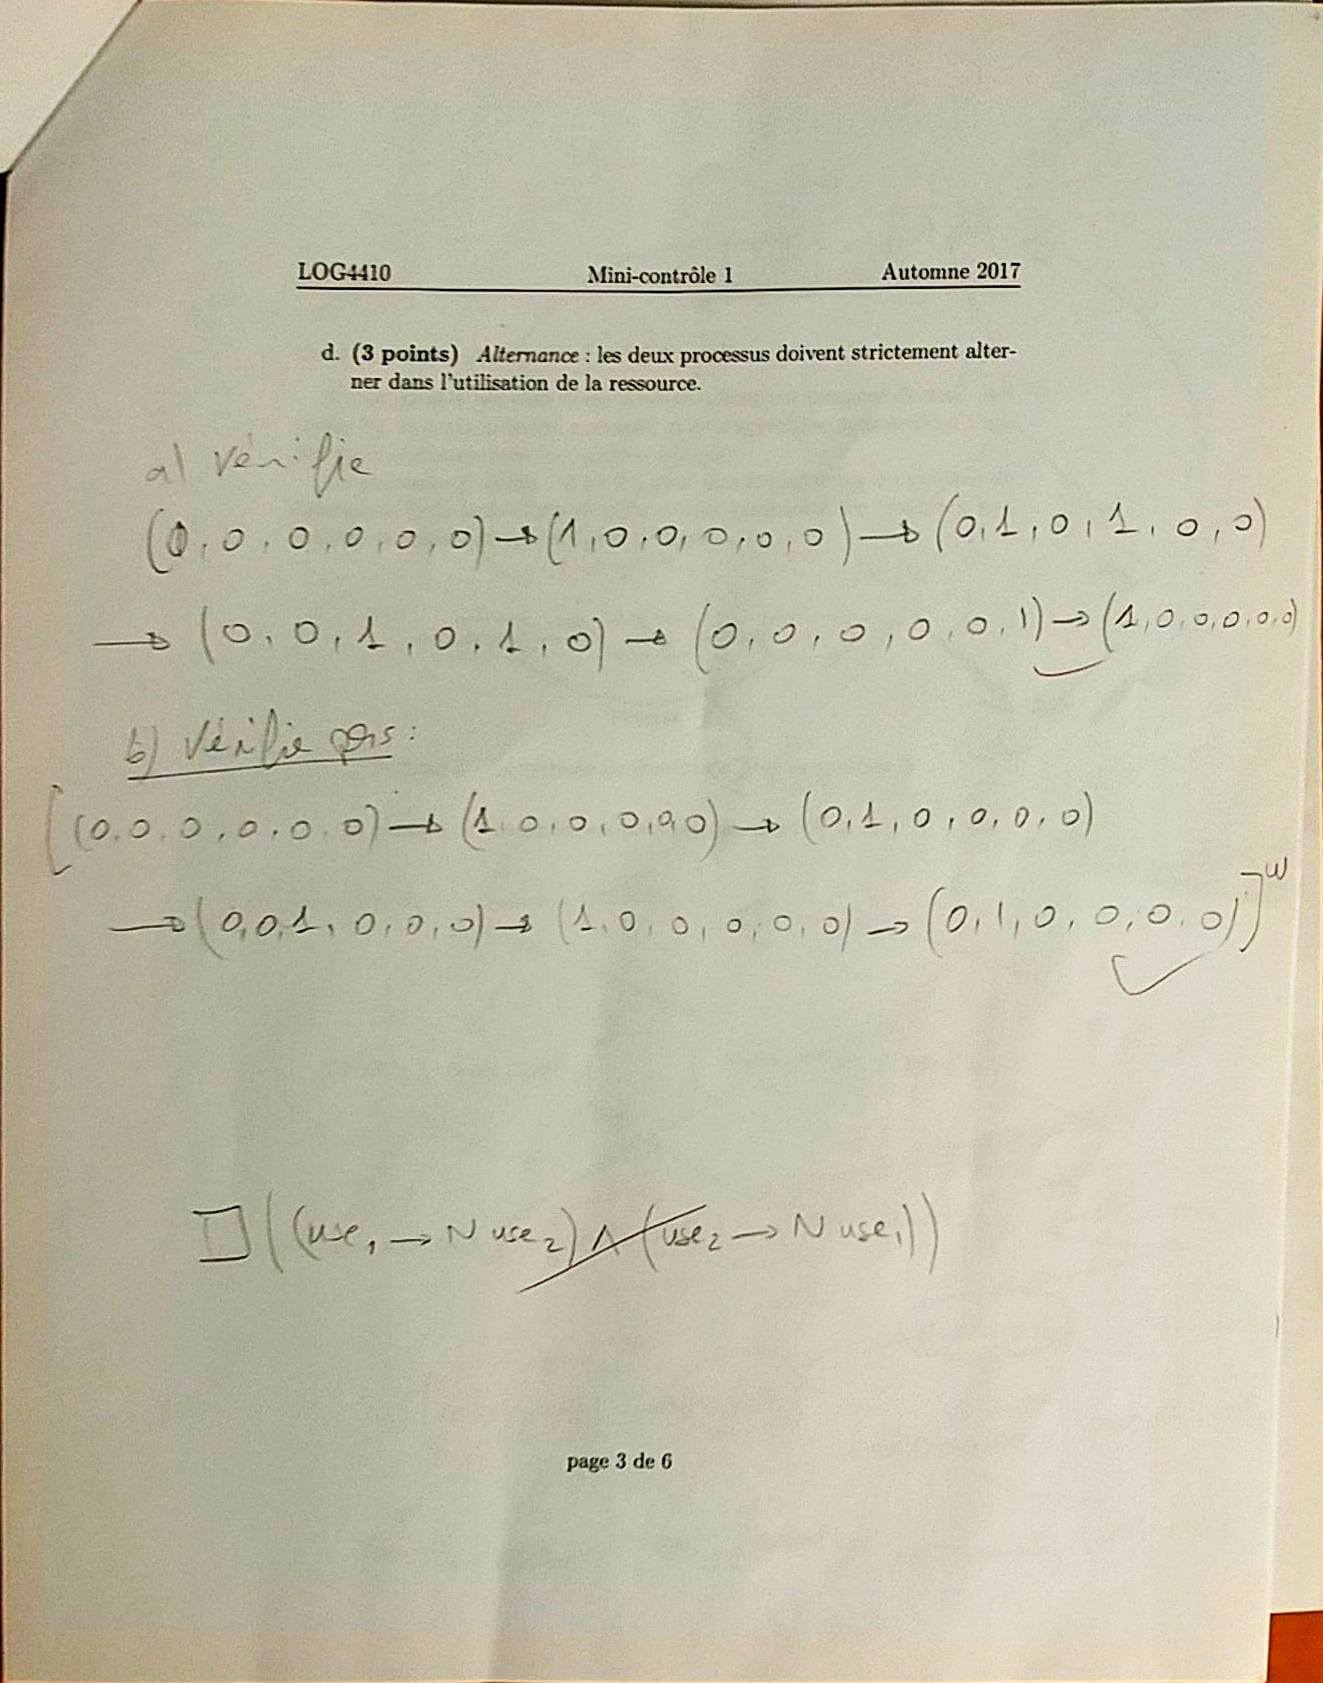 LOG4410 Mini-contrôle 1 Automne 2017
d. (3 points) Alternance : les deux processus doivent strictement alter-
ner dans l'utilisation de la ressource.
a) Vérifie
(0, 0, 0, 0, 0, 0) → (1, 0, 0, 0, 0, 0) → (0, 1, 0, 1, 0, 0)
→ (0, 0, 1, 0, 1, 0) → (0, 0, 0, 0, 0, 1) → (1, 0, 0, 0, 0, 0)
b) Vérifie pas :
[(0, 0, 0, 0, 0, 0) → (1, 0, 0, 0, 0, 0) → (0, 1, 0, 0, 0, 0)
→ (0, 0, 1, 0, 0, 0) → (1, 0, 0, 0, 0, 0) → (0, 1, 0, 0, 0, 0)]^ω
□((use₁ → N use₂) ∧ (use₂ → N use₁))
page 3 de 6